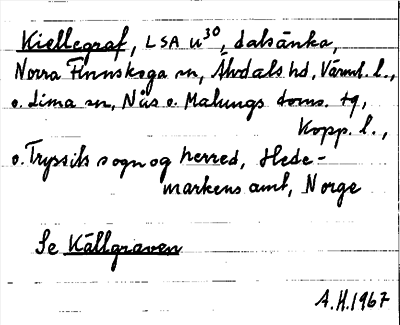 Kiellegraf, LSA u³⁰, dalsänka,
Norra Finnskoga sn, Älvdals hd, Värml. l.,
o. Lima sn, Nås o. Malungs doms. tg,
Kopp. l.,
o. Tryssils sogn og herred, Hede-
markens amt, Norge
Se Källgraven
A.H. 1967